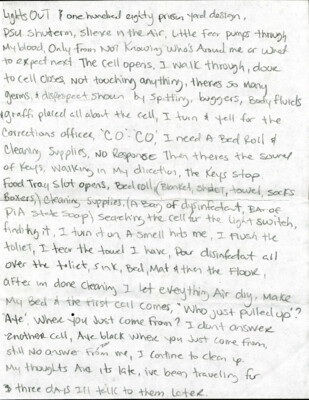 Lights OUT & one hundred eighty prison yard dassign,
PSU shuterm, silence in the Air, Little Fear pumps through
My blood, Only from NOT KNOWING Who's Around me or What
to expect next. The Cell opens, I walk through, door
to cell closes, Not touching anything, theres So many
germs & disrespect shown by spitting, buggers, Body fluids
& graffi placed all about the cell, I turn & yell for the
Corrections officer, "CO" - CO", I need A Bed Roll &
Cleaning Supplies, NO Response Then theres the Sound
of Keys, Walking in My direction, the Keys stop
Food Tray slot opens, Bedroll (Blanket, sheet, towel, socks
Boxers) Cleaning Supplies, (A Bag of disinfectant, BAR of
DIA State Soap) Searching the cell for the light switch,
finding it, I turn it on, A smell hits me, I flush the
toliet, I tear the towel I have, Pour disinfectat all
over the toliet, sink, Bed, Mat & then the Floor,
after im done cleaning I let eveything Air dry, make
My Bed & the first call comes, "Who just pulled up"?
"Aye", Where you Just come from? I dont answer
another call, Aye black where you Just come from,
still NO answer from me, I contine to clean up.
My thoughts Are its late, ive been traveling for
three days I'll talk to them later.